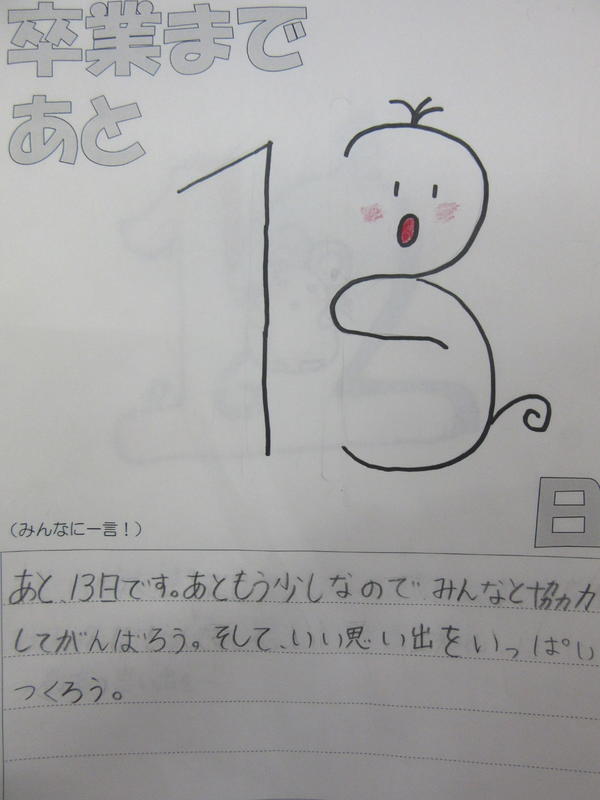 卒業まで
あと
13
日
(みんなに一言！)
あと、13日です。あともう少しなので みんなと協力
してがんばろう。そして、いい思い出をいっぱい
つくろう。